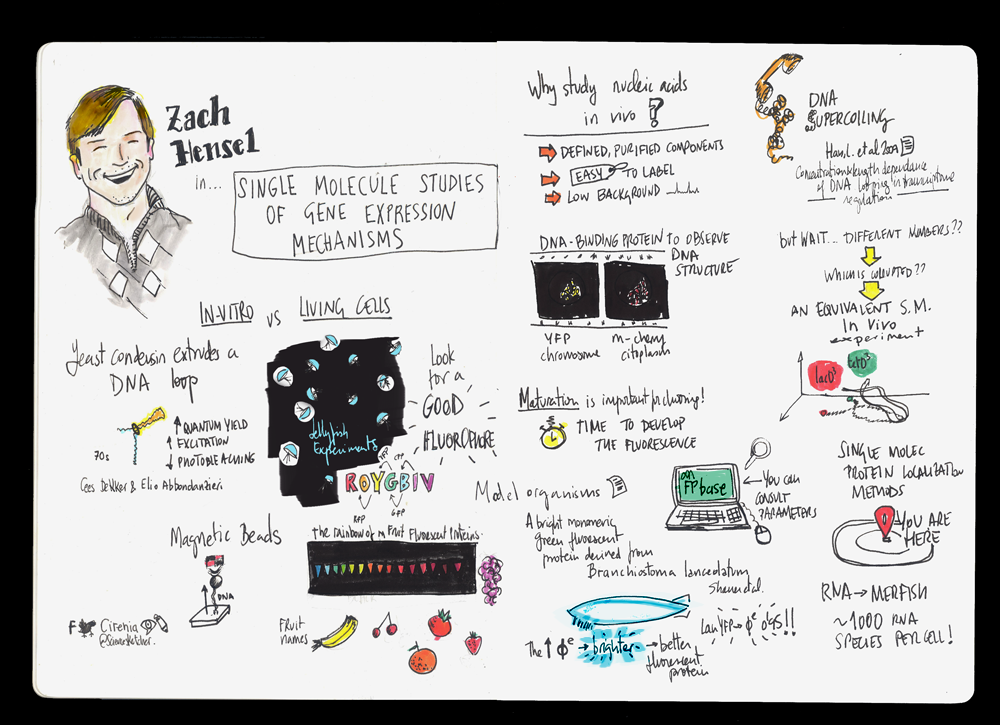 Zach
Hensel
in...
SINGLE MOLECULE STUDIES
OF GENE EXPRESSION
MECHANISMS
IN-VITRO vs LIVING CELLS
Yeast condensin extrudes a
DNA loop
70s
↑ QUANTUM YIELD
↑ EXCITATION
↓ PHOTOBLEACHING
Cees Dekker & Elio Abbondanzieri
Jellyfish
Experiments
Look
for a
GOOD
FLUOROPHORE
YFP CFP
ROYGBIV
RFP GFP
Magnetic Beads
DNA
the rainbow of m Fruit Fluorescent Proteins
FRUIT
names
Cirenia
Why study nucleic acids
in vivo?
DEFINED, PURIFIED COMPONENTS
EASY TO LABEL
LOW BACKGROUND
DNA-BINDING PROTEIN to OBSERVE
DNA
STRUCTURE
YFP
chromosome
m-cherry
citoplasm
Maturation is important for choosing!
TIME TO DEVELOP
THE FLUORESCENCE
Model organisms
FPbase
← YOU CAN
CONSULT
PARAMETERS
A bright monomeric
green fluorescent
protein derived from
Branchiostoma lanceolatum
Shaner et al.
The ↑ ϕᵉ → brighter → better
fluorescent
protein
LanYFP → ϕᵉ 0'95!!
DNA
SUPERCOILING
Han, L. et al 2009
Concentration & length dependance
of DNA looping in transcriptive
regulation
but WAIT... DIFFERENT NUMBERS??
WHICH IS CORRUPTED??
AN EQUIVALENT S.M.
In Vivo
experiment
lacO³
tetO³
SINGLE MOLEC
PROTEIN LOCALIZATION
METHODS
YOU ARE
HERE
RNA → MERFISH
~1000 RNA
SPECIES PER CELL!